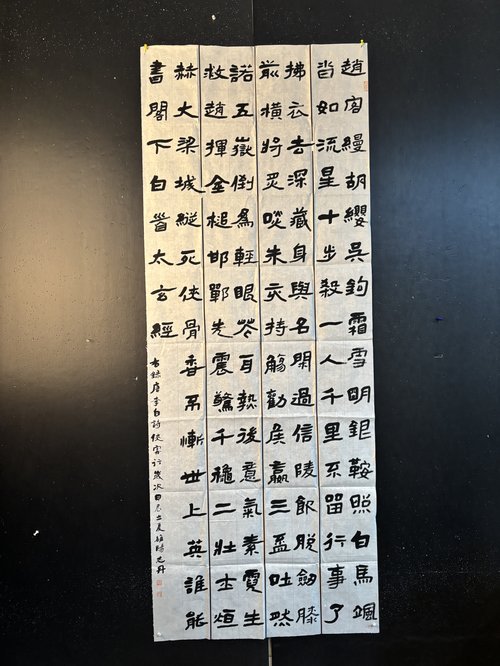 趙客縵胡纓吳鉤霜雪明銀鞍照白馬颯
沓如流星十步殺一人千里不留行事了
拂衣去深藏身與名閑過信陵飲脫劍膝
前橫將炙啖朱亥持觴勸侯嬴三盃吐然
諾五嶽倒為輕眼花耳熱後意氣素霓生
救趙揮金槌邯鄲先震驚千穐二壯士烜
赫大梁城縱死俠骨香不慚世上英誰能
書閣下白首太玄經
右錄唐李白詩俠客行歲次